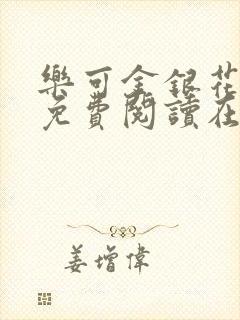 樂可金銀花
免費閱讀在
姜增偉